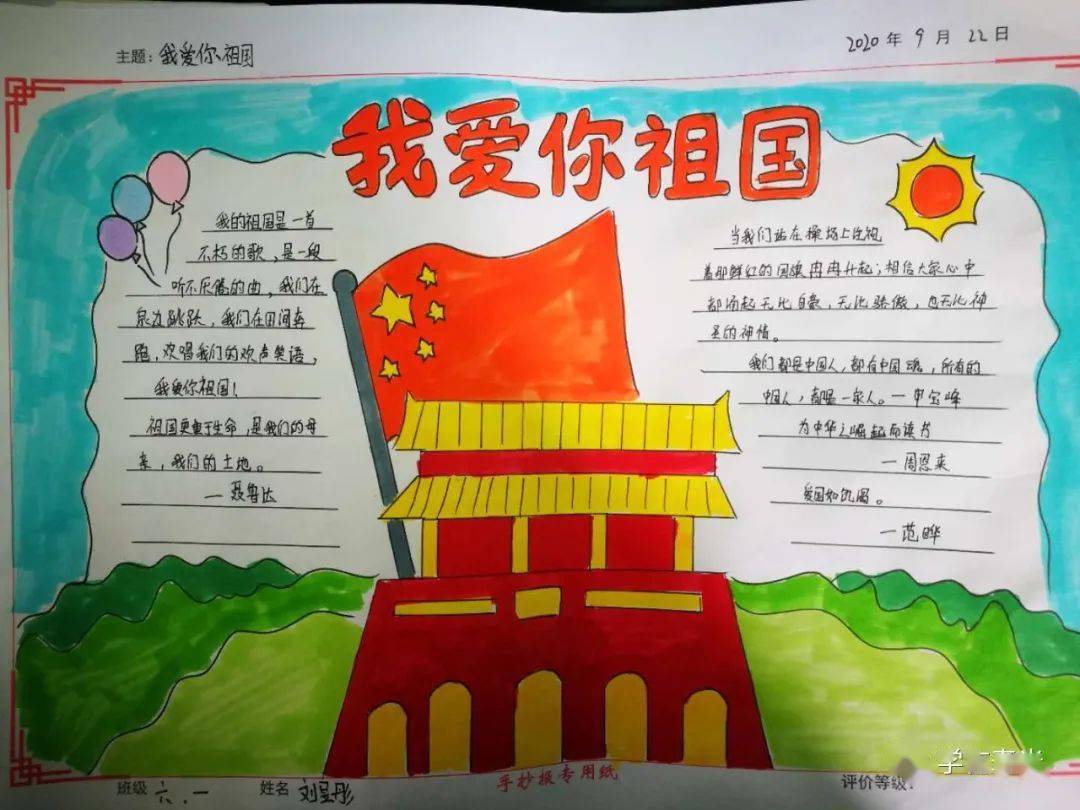 主题：我爱你祖国
2020年9月22日
我爱你祖国
我的祖国是一首
不朽的歌，是一段
听不厌倦的曲，我们在
泉边跳跃，我们在田间奔
跑，欢唱我们的欢声笑语，
我爱你祖国！
祖国更重于生命，是我们的母
亲，我们的土地。
—聂鲁达
当我们站在操场上注视
着那鲜红的国旗冉冉升起；相信大家心中
都涌起无比自豪，无比骄傲，也无比神
圣的神情。
我们都是中国人，都有中国魂，所有的
中国人，都是一家人。—申宝峰
为中华之崛起而读书
—周恩来
爱国如饥渴。
—范晔
手抄报专用纸
班级 六.一 姓名 刘呈彤
评价等级：